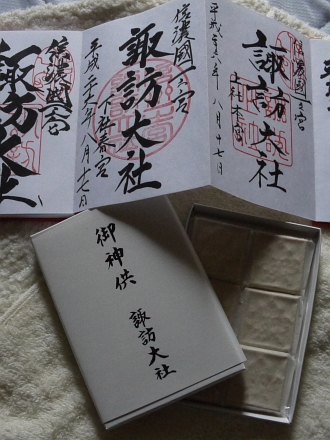 信濃國一之宮
諏訪大社
上社本宮
平成二十八年八月十七日
信濃國一之宮
諏訪大社
下社春宮
平成二十八年八月十七日
信濃國一之宮
諏訪大社
御神供
諏訪大社